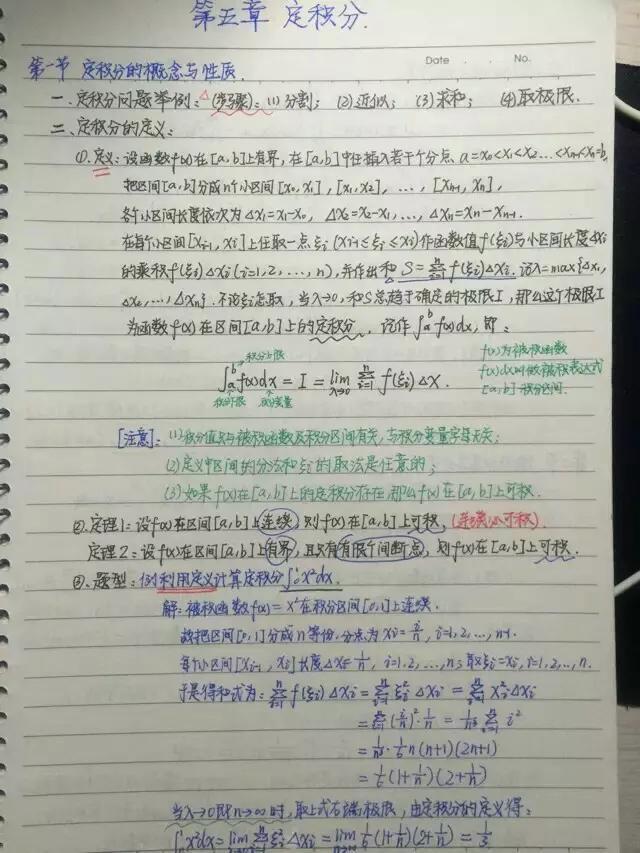 第五章 定积分.
Date . . No.
第一节 定积分的概念与性质.
一.定积分问题举例:△(步骤):(1)分割; (2)近似; (3)求和; (4)取极限.
二.定积分的定义:
①.定义:设函数f(x)在[a,b]上有界,在[a,b]中任插入若干个分点a=x₀<x₁<x₂…<xₙ₋₁<xₙ=b,
把区间[a,b]分成n个小区间[x₀,x₁],[x₁,x₂],…,[xₙ₋₁,xₙ],
各个小区间长度依次为Δx₁=x₁-x₀, Δx₂=x₂-x₁,…,Δxₙ=xₙ-xₙ₋₁.
在每个小区间[xᵢ₋₁,xᵢ]上任取一点ξᵢ(xᵢ₋₁≤ξᵢ≤xᵢ)作函数值f(ξᵢ)与小区间长度Δxᵢ
的乘积f(ξᵢ)Δxᵢ(i=1,2,…,n),并作出和S=∑ⁿᵢ₌₁f(ξᵢ)Δxᵢ.记λ=max{Δx₁,
Δx₂,…,Δxₙ}.不论ξᵢ怎取,当λ→0,和S总趋于确定的极限I,那么这个极限I
为函数f(x)在区间[a,b]上的定积分,记作∫ₐᵇf(x)dx,即:
积分上限
∫ₐᵇf(x)dx = I = lim λ→0 ∑ⁿᵢ₌₁ f(ξᵢ)ΔX.
积分下限 积分变量
f(x)为被积函数
f(x)dx叫做被积表达式
[a,b]积分区间.
[注意]:(1)积分值只与被积函数及积分区间有关,与积分变量字母无关;
(2)定义中区间的分法和ξᵢ的取法是任意的;
(3)如果f(x)在[a,b]上的定积分存在,那么f(x)在[a,b]上可积.
②.定理1:设f(x)在区间[a,b]上连续,则f(x)在[a,b]上可积,(连续必可积).
定理2:设f(x)在区间[a,b]上有界,且只有有限个间断点,则f(x)在[a,b]上可积.
③.题型:例利用定义计算定积分∫₀¹x²dx.
解:被积函数f(x)=x²在积分区间[0,1]上连续.
故把区间[0,1]分成n等份,分点为xᵢ=i/n,i=1,2,…,n-1.
每个小区间[xᵢ₋₁,xᵢ]长度Δxᵢ=1/n,i=1,2,…,n;取ξᵢ=xᵢ,i=1,2,…,n.
于是得和式为:∑ⁿᵢ₌₁f(ξᵢ)Δxᵢ=∑ⁿᵢ₌₁ξᵢ²Δxᵢ=∑ⁿᵢ₌₁xᵢ²Δxᵢ
=∑ⁿᵢ₌₁(i/n)²·1/n=1/n³∑ⁿᵢ₌₁i²
=1/n³·1/6n(n+1)(2n+1)
=1/6(1+1/n)(2+1/n)
当λ→0即n→∞时,取上式右端极限,由定积分的定义得:
∫₀¹x²dx=lim λ→0 ∑ⁿᵢ₌₁ξᵢ²Δxᵢ=lim n→∞ 1/6(1+1/n)(2+1/n)=1/3